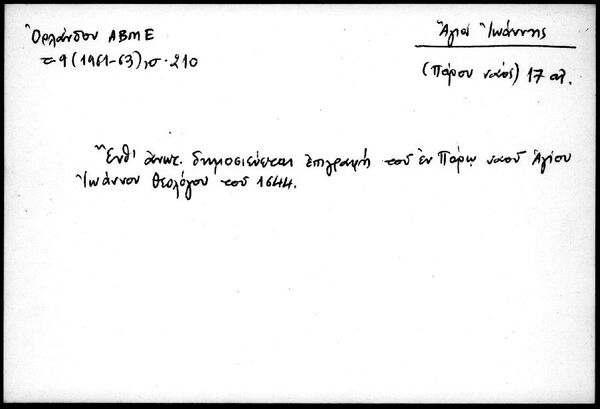 Ὀρλάνδου ΑΒΜΕ
τ. 9 (1961-63), σ. 210
Ἅγιος Ἰωάννης
(Πάρου ναός) 17 αἰ.
Ἔνθ' ἀνωτ. δημοσιεύεται ἐπιγραφή τοῦ ἐν Πάρῳ ναοῦ Ἁγίου
Ἰωάννου Θεολόγου τοῦ 1644.